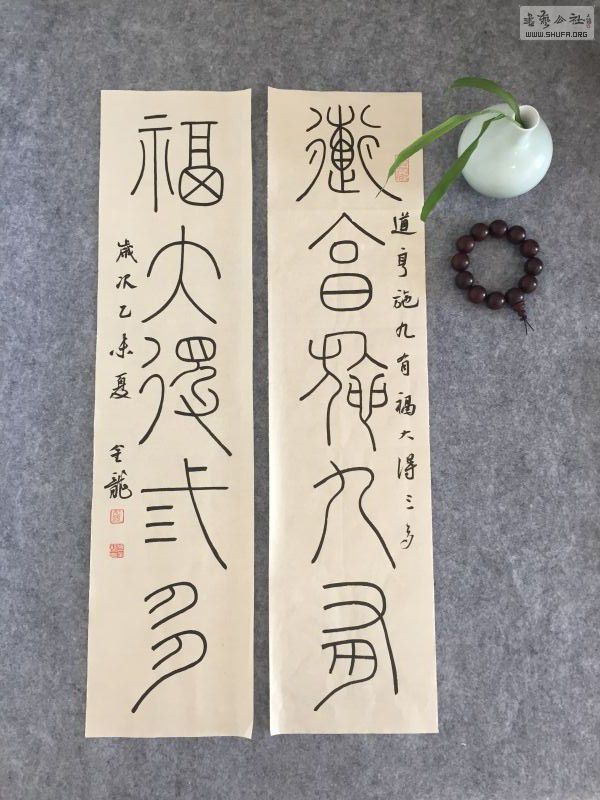 道亨施九有
道亨施九有福大得三多
福大得三多
歲次乙未夏 金龍
書藝公社
WWW.SHUFA.ORG